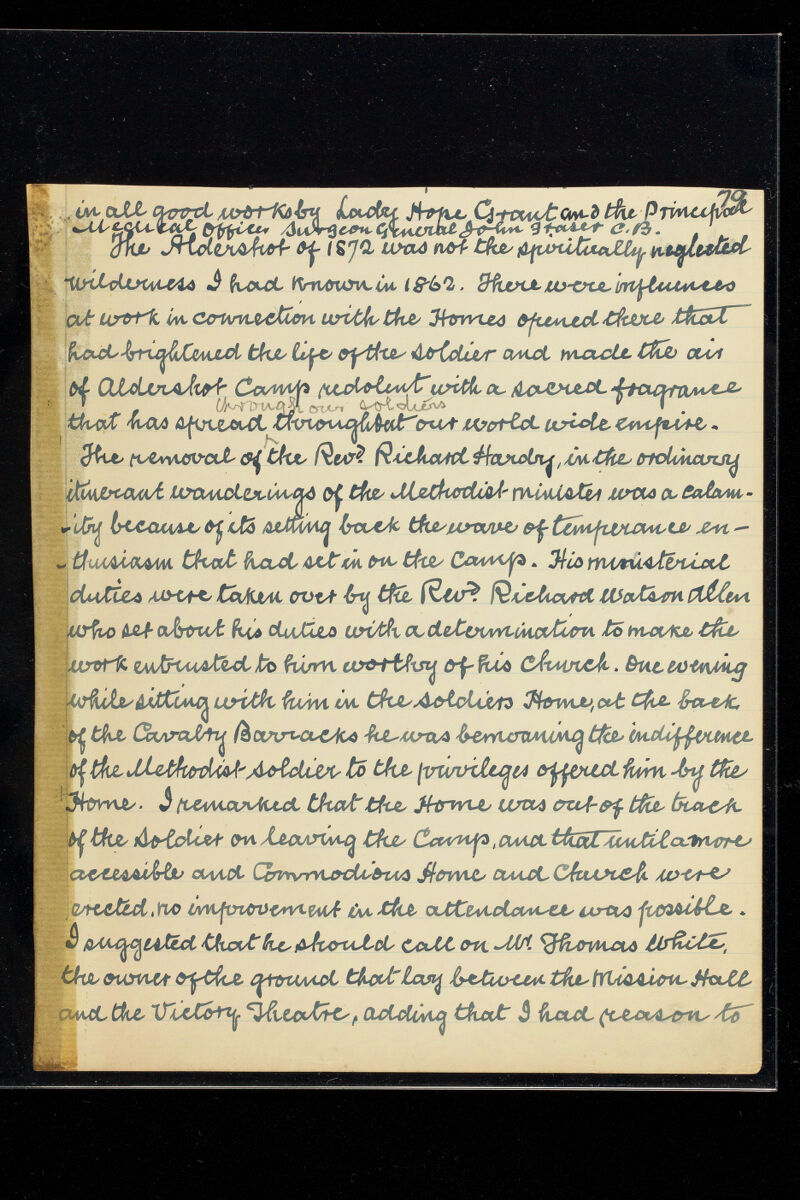 79
in all good works by Lady Hope Grant and the Principal
Medical Officer Surgeon General John Fraser C.B.
The Aldershot of 1872 was not the spiritually neglected
wilderness I had known in 1862. There were influences
at work in connection with the Homes opened there that
had brightened the life of the soldier and made the air
of Aldershot Camp redolent with a sacred fragrance
through our soldiers
that has spread throughout our world wide empire.
The removal of the Revd. Richard Hardy, in the ordinary
itinerant wanderings of the Methodist minister was a calam-
-ity because of its setting back the wave of temperance en-
-thusiasm that had set in on the Camp. His ministerial
duties were taken over by the Revd. Richard Watson Allen
who set about his duties with a determination to make the
work entrusted to him worthy of his Church. One evening
while sitting with him in the soldiers Home, at the back
of the Cavalry Barracks he was bemoaning the indifference
of the Methodist soldier to the privileges offered him by the
Home. I remarked that the Home was out of the track
of the soldier on leaving the Camp, and that until a more
accessible and Commodious Home and Church were
erected, no improvement in the attendance was possible.
I suggested that he should call on Mr. Thomas White,
the owner of the ground that lay between the Mission Hall
and the Victory Theatre, adding that I had reason to